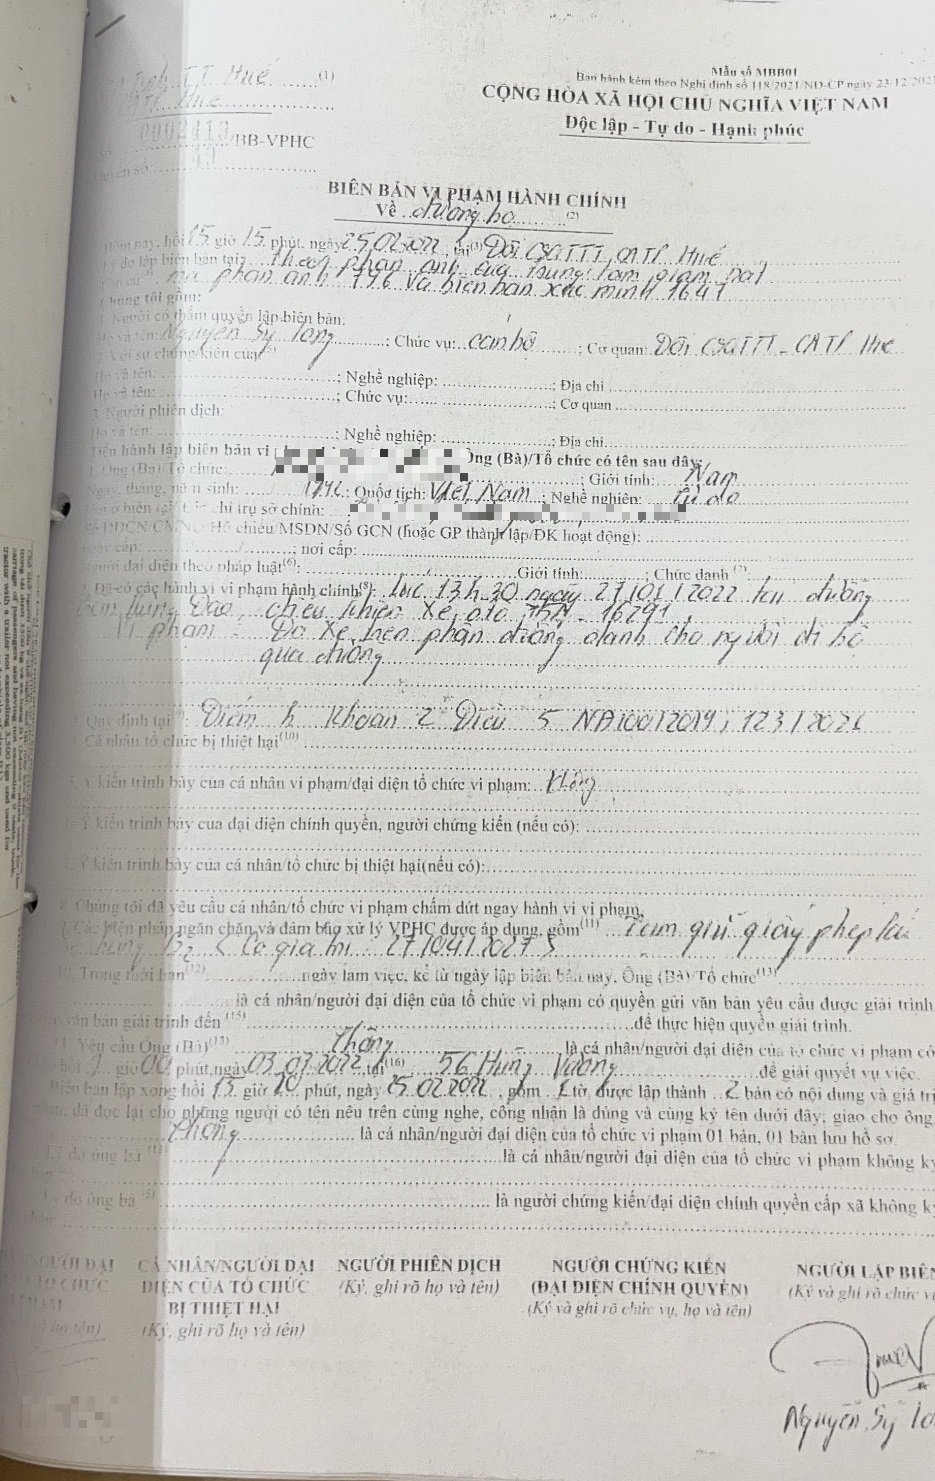 Tỉnh T.T. Huế (1)
TT. Huế
0002413/BB-VPHC
Quyển số 49
Mẫu số MBB01
Ban hành kèm theo Nghị định số 118/2021/NĐ-CP ngày 23/12/2021
CỘNG HÒA XÃ HỘI CHỦ NGHĨA VIỆT NAM
Độc lập - Tự do - Hạnh phúc
BIÊN BẢN VI PHẠM HÀNH CHÍNH
Về đường bộ (2)
Hôm nay, hồi 15 giờ 15 phút, ngày 25/02/2022, tại (3) Đội CSGTTT, CATP Huế
Lý do lập biên bản tại: theo phản ánh của trung tâm giám sát
mã phản ánh 796 và biên bản xác minh 1641
Chúng tôi gồm:
1. Người có thẩm quyền lập biên bản:
Họ và tên: Nguyễn Sỹ Long; Chức vụ: cán bộ; Cơ quan: Đội CSGTTT - CATP Huế
2. Với sự chứng kiến của (5)
Họ và tên: ; Nghề nghiệp: ; Địa chỉ
Họ và tên: ; Chức vụ: ; Cơ quan
3. Người phiên dịch:
Họ và tên: ; Nghề nghiệp: ; Địa chỉ
Tiến hành lập biên bản vi Ông (Bà)/Tổ chức có tên sau đây:
1. Ông (Bà)/Tổ chức: ; Giới tính: Nam
Ngày, tháng, năm sinh: ; Quốc tịch: Việt Nam; Nghề nghiệp: tự do
chỉ trụ sở chính:
Hộ chiếu/MSDN/Số GCN (hoặc GP thành lập/ĐK hoạt động):
ngày cấp: / / ; nơi cấp:
Người đại diện theo pháp luật (6): Giới tính: ; Chức danh (7):
Đã có các hành vi vi phạm hành chính (8): Lúc 13h30 ngày 27/01/2022 tại đường
Đàm Phùng Đạo, điều khiển xe ôtô 75A-16291
Vi phạm: Đỗ xe trên phần đường dành cho người đi bộ
qua đường
2. Quy định tại (9): Điểm h Khoản 2 Điều 5 NĐ100/2019; 123/2021
Cá nhân tổ chức bị thiệt hại (10)
5. Ý kiến trình bày của cá nhân vi phạm/đại diện tổ chức vi phạm: Không
6. Ý kiến trình bày của đại diện chính quyền, người chứng kiến (nếu có):
7. Ý kiến trình bày của cá nhân/tổ chức bị thiệt hại(nếu có):
8. Chúng tôi đã yêu cầu cá nhân/tổ chức vi phạm chấm dứt ngay hành vi vi phạm.
Các biện pháp ngăn chặn và đảm bảo xử lý VPHC được áp dụng, gồm (11): Tạm giữ giấy phép lái
hạng B2, có giá trị: 27/04/2027
10. Trong thời hạn (12) ngày làm việc, kể từ ngày lập biên bản này, Ông (Bà)/Tổ chức (13)
là cá nhân/người đại diện của tổ chức vi phạm có quyền gửi văn bản yêu cầu được giải trình
văn bản giải trình đến (15) để thực hiện quyền giải trình.
11. Yêu cầu Ông (Bà) (13) Thông là cá nhân/người đại diện của tổ chức vi phạm có
hồi 7 giờ 00 phút, ngày 03/07/2022 tại (16) 56 Hùng Vương để giải quyết vụ việc.
Biên bản lập xong hồi 15 giờ 20 phút, ngày 25/02/2022, gồm 1 tờ, được lập thành 2 bản có nội dung và giá trị
nhau; đã đọc lại cho những người có tên nêu trên cùng nghe, công nhận là đúng và cùng ký tên dưới đây; giao cho ông
Thông là cá nhân/người đại diện của tổ chức vi phạm 01 bản, 01 bản lưu hồ sơ.
Lý do ông bà (13) là cá nhân/người đại diện của tổ chức vi phạm không ký
Lý do ông bà (5) là người chứng kiến/đại diện chính quyền cấp xã không ký
NGƯỜI ĐẠI
TỔ CHỨC
họ tên)
CÁ NHÂN/NGƯỜI ĐẠI
DIỆN CỦA TỔ CHỨC
BỊ THIỆT HẠI
(Ký, ghi rõ họ và tên)
NGƯỜI PHIÊN DỊCH
(Ký, ghi rõ họ và tên)
NGƯỜI CHỨNG KIẾN
(ĐẠI DIỆN CHÍNH QUYỀN)
(Ký và ghi rõ chức vụ, họ và tên)
NGƯỜI LẬP BIÊN
(Ký và ghi rõ chức vụ
Nguyễn Sỹ Lo